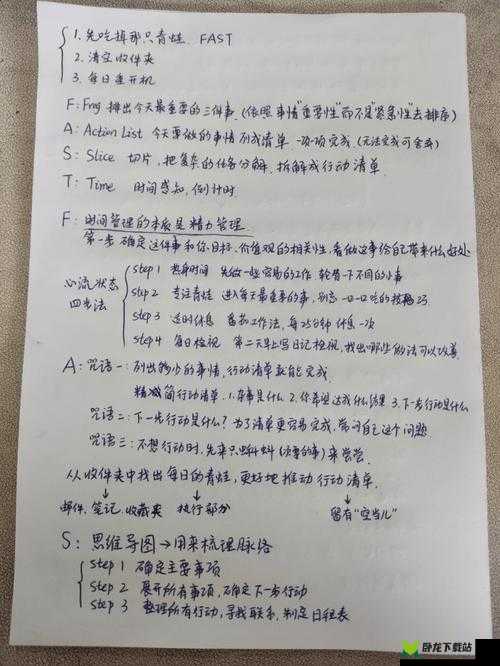 1. 先吃掉那只青蛙. FAST
2. 清空收件夹
3. 每日重开机
F: Frog 排出今天最重要的三件事. (依照事情"重要性"而不是"紧急性"去排序)
A: Action List 今天要做的事情列成清单 一项一项完成. (无法完成可舍弃)
S: Slice 切片, 把复杂的任务分解. 拆解成行动清单.
T: Time 时间感知, 倒计时.
F: 时间管理的本质是精力管理.
第一步 确定这件事和你目标.价值观的相关性, 看做这事给自己带来什么好处
心流状态
四步法
step 1 热身时间 先做一些容易的工作 轮替一下不同的小事
step 2 专注青蛙 进入每天最重要的事, 别忘一口一口吃的技巧
step 3 适时休息 番茄工作法, 每25分钟休息一次
step 4 每日检视 第二天早上写日记检视, 找出哪些做法可以改善.
A: 咒语一: 列出够小的事情, 行动清单就能完成.
精简行动清单. 1. 杂事是什么 2. 你希望达成什么结果 3. 下一步行动是什么
咒语二: 下一步行动是什么? 为了清单更容易完成, 常问自己这个问题
咒语三: 不想行动时, 先来只蝌蚪(次要的事)来尝尝.
从收件夹中找出每日的青蛙, 更好地推动行动清单.
邮件, 笔记, 收藏夹 执行部分 留有"空当儿"
S: 思维导图→用来梳理脉络
step 1 确定主要事项
step 2 展开所有事项, 确定下一步行动
step 3 整理所有行动, 寻找联系, 制定日程表
卧龙下载站